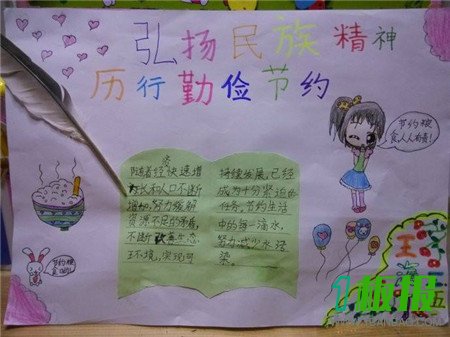 弘扬民族精神
历行勤俭节约
随着经济快速增
长和人口不断
增加,努力缓解
资源不足的矛盾,
不断改善生态
环境,实现可
持续发展,已经
成为十分紧迫的
任务,节约生活
中的每一滴水,
努力减少水污
染。
节约粮
食人人有责!
节约粮
食哟!
王
五
板报